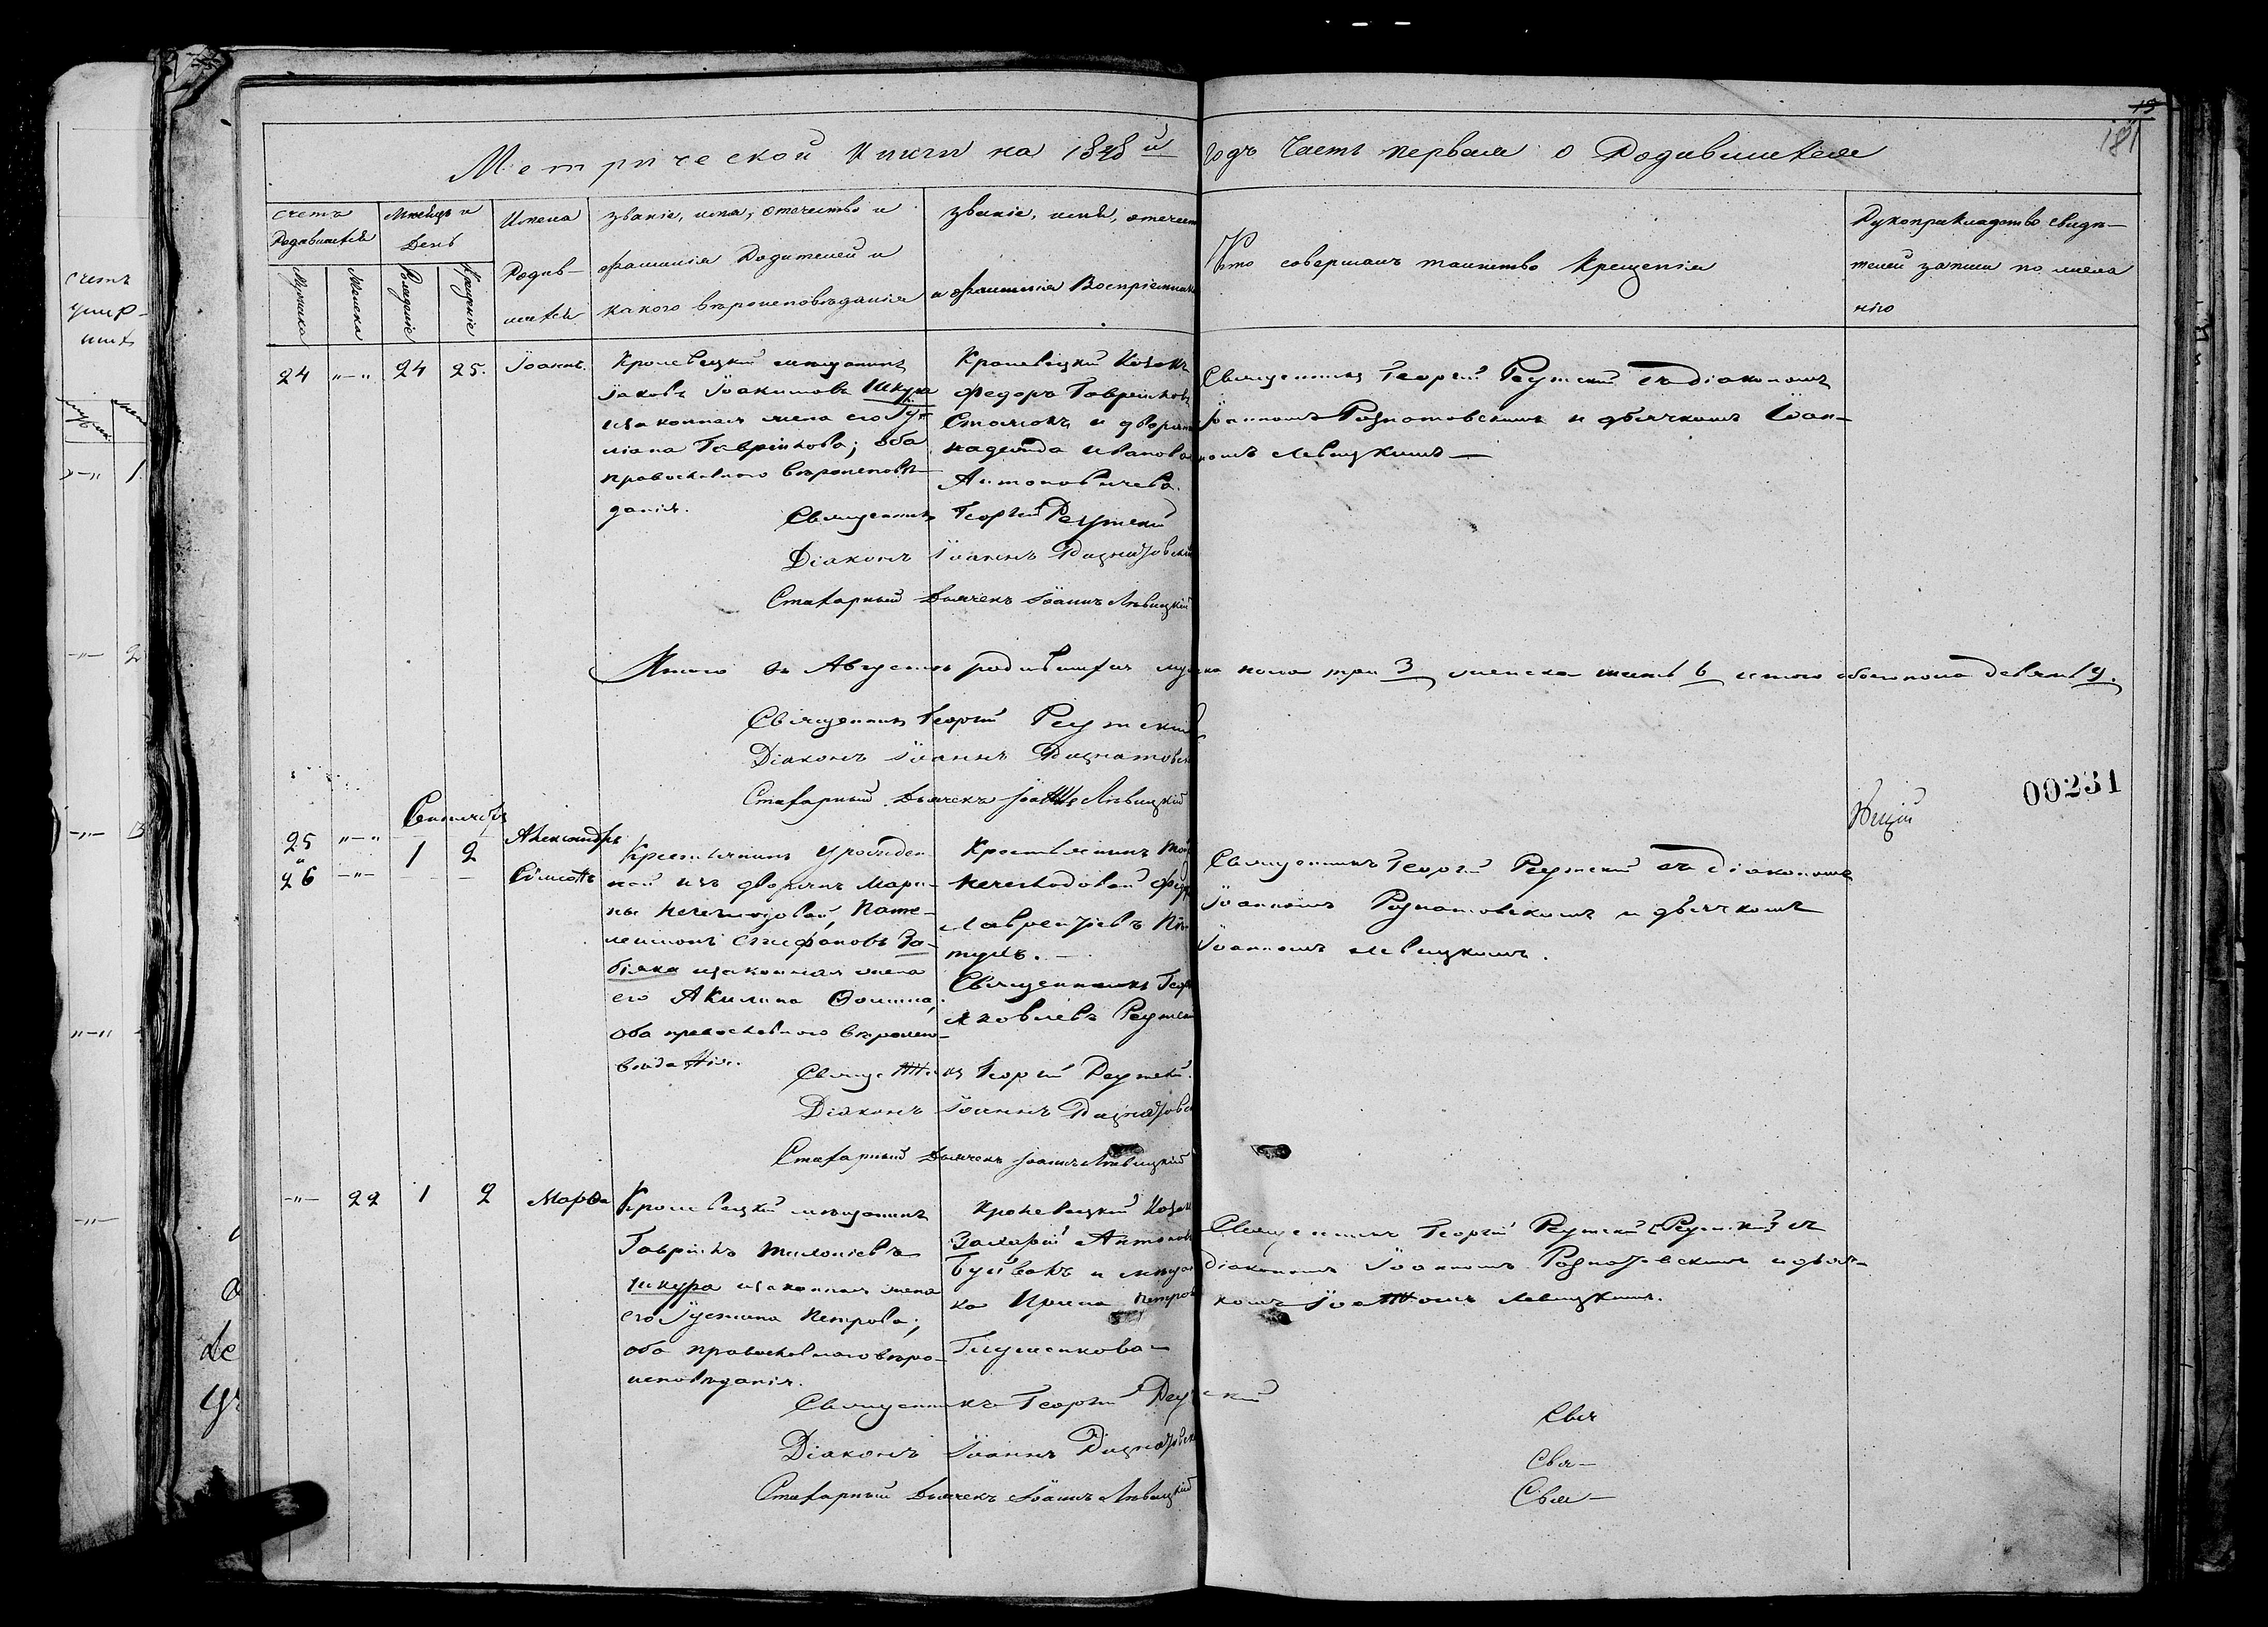 Метрической Книги на 1848й годъ Часть первая о Родившихся
181
счетъ Родившихся
Мѣсяцъ и День
Имена Родив-шихся
званіе, имя, отечество и фамилія Родителей и какого вѣроисповѣданія
званіе, имя, отечест и фамилія Воспріемник
Кто совершалъ таинство Крещенія
Рукоприкладство свидѣ-телей записи по жела нію
Мужска
Женска
Рожденіе
Крещеніе
24 „—„ 24 25. Іоаннъ.
Кролевецкій мещанинъ
Іаковъ Іоакимовъ Шкура
изаконная жена его Іу
ліана Гавріилова; оба
православного вѣроисповѣ-
данія.
Кролевецкій Козакъ
Федоръ Гавріиловъ
и дворян
надежда Иванова
Антоновичева.
Священникъ Георгій Реутскій съ діакономъ
Іоанномъ Рознатовскимъ и дьячкомъ Іоан-
номъ Левицкимъ —
Священникъ Георгій Реутскій
Діаконъ Іоаннъ Рознатовскій
Стихарный Дьячекъ Іоаннъ Лѣвицкій
Итого въ Августѣ родившихся мужска пола три 3 женска шесть 6 итого обоего пола девять 9.
Священникъ Георгій Реутскій
Діаконъ Іоаннъ Рознатовск
Стихарный Дьячекъ Іоаннъ Лѣвицкій
00231
Сентябрь
25 „—„ 1 2 Александръ
26 —„— Сѵмеонъ
Крестьянинъ урожден
ной изъ дворянъ Мари-
ны Нечеходовой, Панте-
леимонъ Стефановъ За-
біяка изаконная жена
его Акилина Фомина,
оба православного вѣроиспо-
вѣданія.
Крестьянинъ той
Нечеходовой
Лаврентіевъ Пи
тухъ. —
Священникъ Геор
Яковлевъ Реутскі
Священникъ Георгій Реутскій съ діакономъ
Іоанномъ Рознатовскимъ и дьячкомъ
Іоанномъ Левицкимъ.
Священникъ Георгій Реутскій.
Діаконъ Іоаннъ Рознатовск
Стихарный Дьячекъ Іоаннъ Лѣвицкій
—„— 22 1 2 Марѳа
Кролевецкій мѣщанинъ
Гавріилъ
Шкура изаконная жена
его Іустина Петрова;
оба православного вѣро-
исповѣданія.
Кролевецкій Козак
Захарій Антонов
и мѣщан
ка Ирина Петров
Глушенкова —
Священникъ Георгій Реутскій съ
діакономъ Іоанномъ Рознатовскимъ и дьяч-
комъ Іоанномъ Левицкимъ.
Священникъ Георгій Реутскій
Діаконъ Іоаннъ Рознатовск
Стихарный Дьячекъ Іоаннъ Лѣвицкій
Свя
Свя—
Свя—